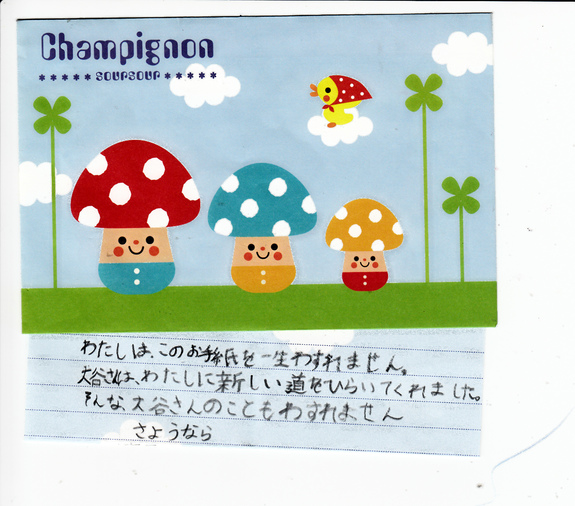 Champignon
***** SOUPSOUP *****
わたしは、このお手紙を一生わすれません。
大谷さんは、わたしに新しい道をひらいてくれました。
そんな大谷さんのこともわすれません
さようなら